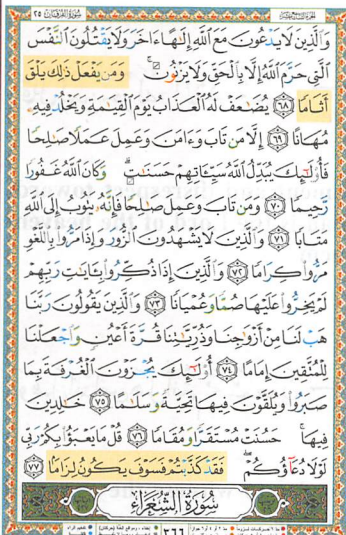 سُورَةُ الفُرْقَان ٢٥
وَالَّذِينَ لَا يَدْعُونَ مَعَ اللَّهِ إِلَٰهًا ءَاخَرَ وَلَا يَقْتُلُونَ النَّفْسَ
الَّتِي حَرَّمَ اللَّهُ إِلَّا بِالْحَقِّ وَلَا يَزْنُونَ ۚ وَمَن يَفْعَلْ ذَٰلِكَ يَلْقَ
أَثَامًا ﴿٦٨﴾ يُضَٰعَفْ لَهُ الْعَذَابُ يَوْمَ الْقِيَٰمَةِ وَيَخْلُدْ فِيهِۦ
مُهَانًا ﴿٦٩﴾ إِلَّا مَن تَابَ وَءَامَنَ وَعَمِلَ عَمَلًا صَٰلِحًا
فَأُولَٰئِكَ يُبَدِّلُ اللَّهُ سَيِّـَٔاتِهِمْ حَسَنَٰتٍ ۗ وَكَانَ اللَّهُ غَفُورًا
رَّحِيمًا ﴿٧٠﴾ وَمَن تَابَ وَعَمِلَ صَٰلِحًا فَإِنَّهُۥ يَتُوبُ إِلَى اللَّهِ
مَتَابًا ﴿٧١﴾ وَالَّذِينَ لَا يَشْهَدُونَ الزُّورَ وَإِذَا مَرُّوا بِاللَّغْوِ
مَرُّوا كِرَامًا ﴿٧٢﴾ وَالَّذِينَ إِذَا ذُكِّرُوا بِـَٔايَٰتِ رَبِّهِمْ
لَمْ يَخِرُّوا عَلَيْهَا صُمًّا وَعُمْيَانًا ﴿٧٣﴾ وَالَّذِينَ يَقُولُونَ رَبَّنَا
هَبْ لَنَا مِنْ أَزْوَٰجِنَا وَذُرِّيَّٰتِنَا قُرَّةَ أَعْيُنٍ وَاجْعَلْنَا
لِلْمُتَّقِينَ إِمَامًا ﴿٧٤﴾ أُولَٰئِكَ يُجْزَوْنَ الْغُرْفَةَ بِمَا
صَبَرُوا وَيُلَقَّوْنَ فِيهَا تَحِيَّةً وَسَلَٰمًا ﴿٧٥﴾ خَٰلِدِينَ
فِيهَا ۚ حَسُنَتْ مُسْتَقَرًّا وَمُقَامًا ﴿٧٦﴾ قُلْ مَا يَعْبَؤُا بِكُمْ رَبِّي
لَوْلَا دُعَاؤُكُمْ ۖ فَقَدْ كَذَّبْتُمْ فَسَوْفَ يَكُونُ لِزَامًا ﴿٧٧﴾
سُورَةُ الشُّعَرَاءِ
٣٦٦